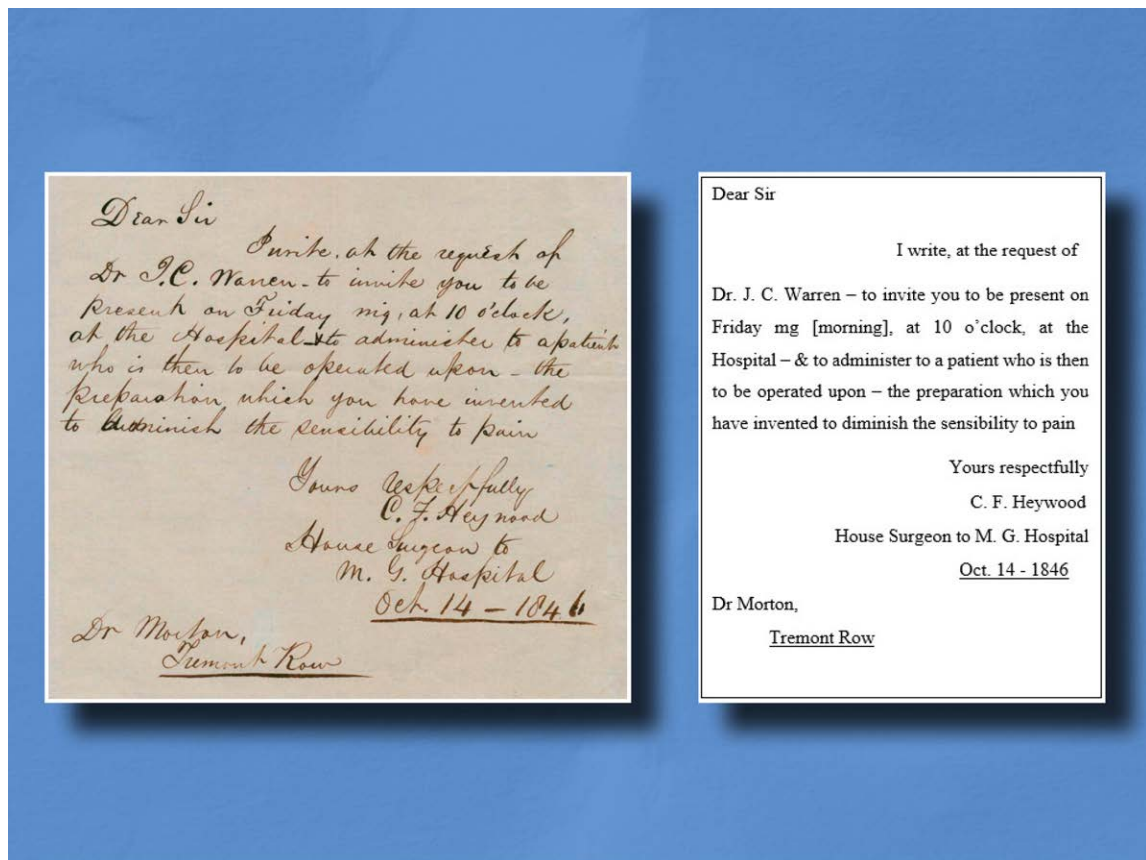 Dear Sir
I write, at the request of
Dr J.C. Warren - to invite you to be
present on Friday mg, at 10 o'clock,
at the Hospital - & to administer to a patient
who is then to be operated upon - the
preparation which you have invented
to diminish the sensibility to pain
Yours respectfully
C. F. Heywood
House Surgeon to
M. G. Hospital
Oct. 14 - 1846
Dr Morton,
Tremont Row
Dear Sir
I write, at the request of
Dr. J. C. Warren – to invite you to be present on
Friday mg [morning], at 10 o’clock, at the
Hospital – & to administer to a patient who is then
to be operated upon – the preparation which you
have invented to diminish the sensibility to pain
Yours respectfully
C. F. Heywood
House Surgeon to M. G. Hospital
Oct. 14 - 1846
Dr Morton,
Tremont Row